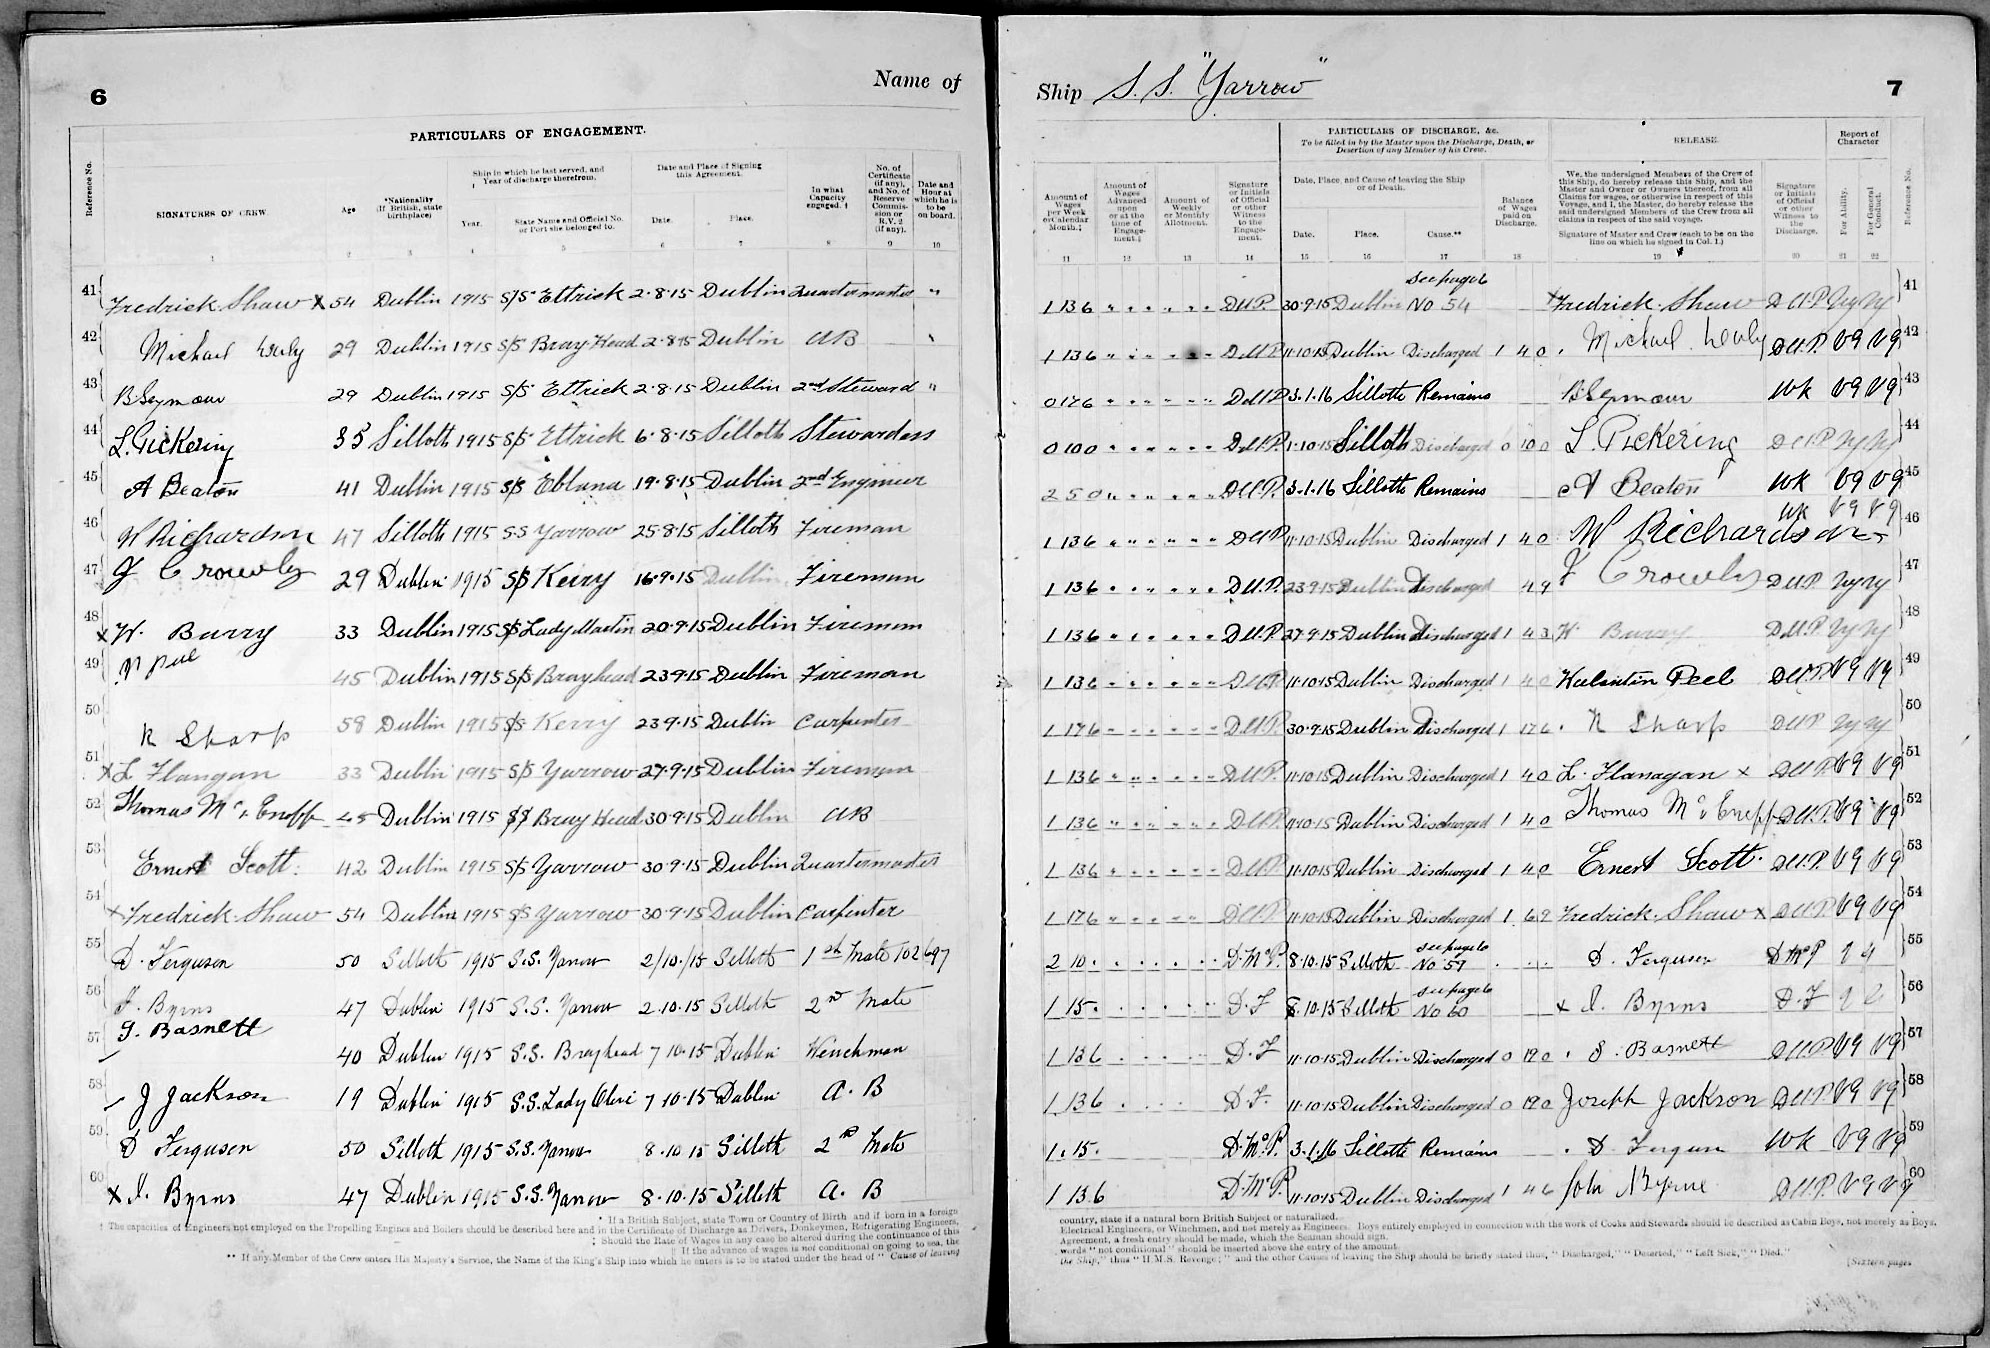 6
Name of
PARTICULARS OF ENGAGEMENT.
Reference No.
SIGNATURES OF CREW.
Age
*Nationality (If British, state birthplace)
Ship in which he last served, and Year of discharge therefrom.
Year.
State Name and Official No. or Port she belonged to.
Date and Place of Signing this Agreement.
Date.
Place.
In what Capacity engaged. †
No. of Certificate (if any), and No. of Reserve Commission or R.V. 2 (if any).
Date and Hour at which he is to be on board.
1 2 3 4 5 6 7 8 9 10
41 Fredrick Shaw X 54 Dublin 1915 S/S Ettrick 2·8·15 Dublin Quartermaster "
42 Michael 29 Dublin 1915 S/S Bray Head 2·8·15 Dublin AB
43 B Seymour 29 Dublin 1915 S/S Ettrick 2·8·15 Dublin 2nd Steward "
44 L. Pickering 35 Silloth 1915 S/S Ettrick 6·8·15 Silloth Stewardess
45 A Beaton 41 Dublin 1915 S/S Eblana 19·8·15 Dublin 2nd Engineer
46 W Richardson 47 Silloth 1915 S·S Yarrow 25·8·15 Silloth Fireman
47 J Crowley 29 Dublin 1915 S/S Kerry 16·9·15 Dublin Fireman
48 X W. Barry 33 Dublin 1915 S/S Lady Martin 20·9·15 Dublin Fireman
49 V Peel 45 Dublin 1915 S/S Brayhead 23·9·15 Dublin Fireman
50 R Sharp 58 Dublin 1915 S/S Kerry 23·9·15 Dublin Carpenter
51 X L Flangan 33 Dublin 1915 S/S Yarrow 27·9·15 Dublin Fireman
52 Thomas 45 Dublin 1915 S/S Bray Head 30·9·15 Dublin AB
53 Ernest Scott. 42 Dublin 1915 S/S Yarrow 30·9·15 Dublin Quartermaster
54 X Fredrick Shaw 54 Dublin 1915 S/S Yarrow 30·9·15 Dublin Carpenter
55 D. Ferguson 50 Silloth 1915 S.S. Yarrow 2/10/15 Silloth 1st Mate
56 J. Byrns 47 Dublin 1915 S.S. Yarrow 2.10.15 Silloth 2nd Mate
57 J. Basnett 40 Dublin 1915 S.S. Brayhead 7·10·15 Dublin Winchman
58 J Jackson 19 Dublin 1915 S.S. Lady 7·10·15 Dublin A. B
59 D Ferguson 50 Silloth 1915 S.S. Yarrow 8·10·15 Silloth 2nd Mate
60 X J. Byrns 47 Dublin 1915 S.S. Yarrow 8·10·15 Silloth A. B
* If a British Subject, state Town or Country of Birth and if born in a foreign
† The capacities of Engineers not employed on the Propelling Engines and Boilers should be described here and in the Certificate of Discharge as Drivers, Donkeymen, Refrigerating Engineers,
‡ Should the Rate of Wages in any case be altered during the continuance of this
|| If the advance of wages is not conditional on going to sea, the
** If any Member of the Crew enters His Majesty's Service, the Name of the King's Ship into which he enters is to be stated under the head of "Cause of leaving
Ship S.S. "Yarrow"
7
PARTICULARS OF DISCHARGE, &c.
To be filled in by the Master upon the Discharge, Death, or Desertion of any Member of his Crew.
RELEASE.
Report of Character
Amount of Wages per Week or Calendar Month.‡
Amount of Wages Advanced upon or at the time of Engagement.‡
Amount of Weekly or Monthly Allotment.
Signature or Initials of Official or other Witness to the Engagement.
Date, Place, and Cause of leaving the Ship or of Death.
Date.
Place.
Cause.**
Balance of Wages paid on Discharge.
We, the undersigned Members of the Crew of this Ship, do hereby release this Ship, and the Master and Owner or Owners thereof, from all Claims for wages, or otherwise in respect of this Voyage, and I, the Master, do hereby release the said undersigned Members of the Crew from all claims in respect of the said voyage.
Signature of Master and Crew (each to be on the line on which he signed in Col. 1.)
Signature or Initials of Official or other Witness to the Discharge.
For Ability.
For General Conduct.
Reference No.
11 12 13 14 15 16 17 18 19 20 21 22
1 13 6 D.U.P. 30·9·15 Dublin See page 6 No 54 X Fredrick Shaw D.U.P. Vg Vg 41
1 13 6 D.U.P. 11·10·15 Dublin Discharged 1 4 0 Michael D.U.P. VG VG 42
0 17 6 D.U.P. 3·1·16 Silloth Remains B Seymour WK VG VG 43
0 10 0 D.U.P. 1·10·15 Silloth Discharged 0 10 0 L. Pickering D.U.P. Vg Vg 44
2 5 0 D.U.P. 3·1·16 Silloth Remains A Beaton WK VG VG 45
1 13 6 D.U.P. 11·10·15 Dublin Discharged 1 4 0 W Richardson WK VG VG 46
1 13 6 D.U.P. 23·9·15 Dublin Discharged 4 9 J Crowley D.U.P. Vg Vg 47
1 13 6 D.U.P. 27·9·15 Dublin Discharged 1 4 3 W Barry D.U.P. Vg Vg 48
1 13 6 D.U.P. 11·10·15 Dublin Discharged 1 4 0 Valentin Peel D.U.P. VG VG 49
1 17 6 D.U.P. 30·9·15 Dublin Discharged 1 17 6 R Sharp D.U.P. Vg Vg 50
1 13 6 D.U.P. 11·10·15 Dublin Discharged 1 4 0 L. Flanagan X D.U.P. VG VG 51
1 13 6 D.U.P. 11·10·15 Dublin Discharged 1 4 0 Thomas D.U.P. VG VG 52
1 13 6 D.U.P. 11·10·15 Dublin Discharged 1 4 0 Ernest Scott. D.U.P. VG VG 53
1 17 6 D.U.P. 11·10·15 Dublin Discharged 1 6 9 Fredrick Shaw X D.U.P. VG VG 54
2 10 . D.McP. 8·10·15 Silloth See page 6 No 59 D. Ferguson D McP 55
1 15 . D.F 8·10·15 Silloth See page 6 No 60 X J. Byrns D.F 56
1 13 6 D.F 11·10·15 Dublin Discharged 0 19 0 J. Basnett D.U.P. VG VG 57
1 13 6 D.F. 11·10·15 Dublin Discharged 0 19 0 Joseph Jackson D.U.P. VG VG 58
1 . 15 . D.McP. 3·1·16 Silloth Remains D. Ferguson WK VG VG 59
1 13 6 D.McP. 11·10·15 Dublin Discharged 1 4 6 John Byrne D.U.P. VG VG 60
country, state if a natural born British Subject or naturalised.
Electrical Engineers, or Winchmen, and not merely as Engineers. Boys entirely employed in connection with the work of Cooks and Stewards should be described as Cabin Boys, not merely as Boys.
Agreement, a fresh entry should be made, which the Seaman should sign.
words "not conditional" should be inserted above the entry of the amount.
the Ship," thus "H.M.S. Revenge;" and the other Causes of leaving the Ship should be briefly stated thus, "Discharged," "Deserted," "Left Sick," "Died."
[Sixteen pages